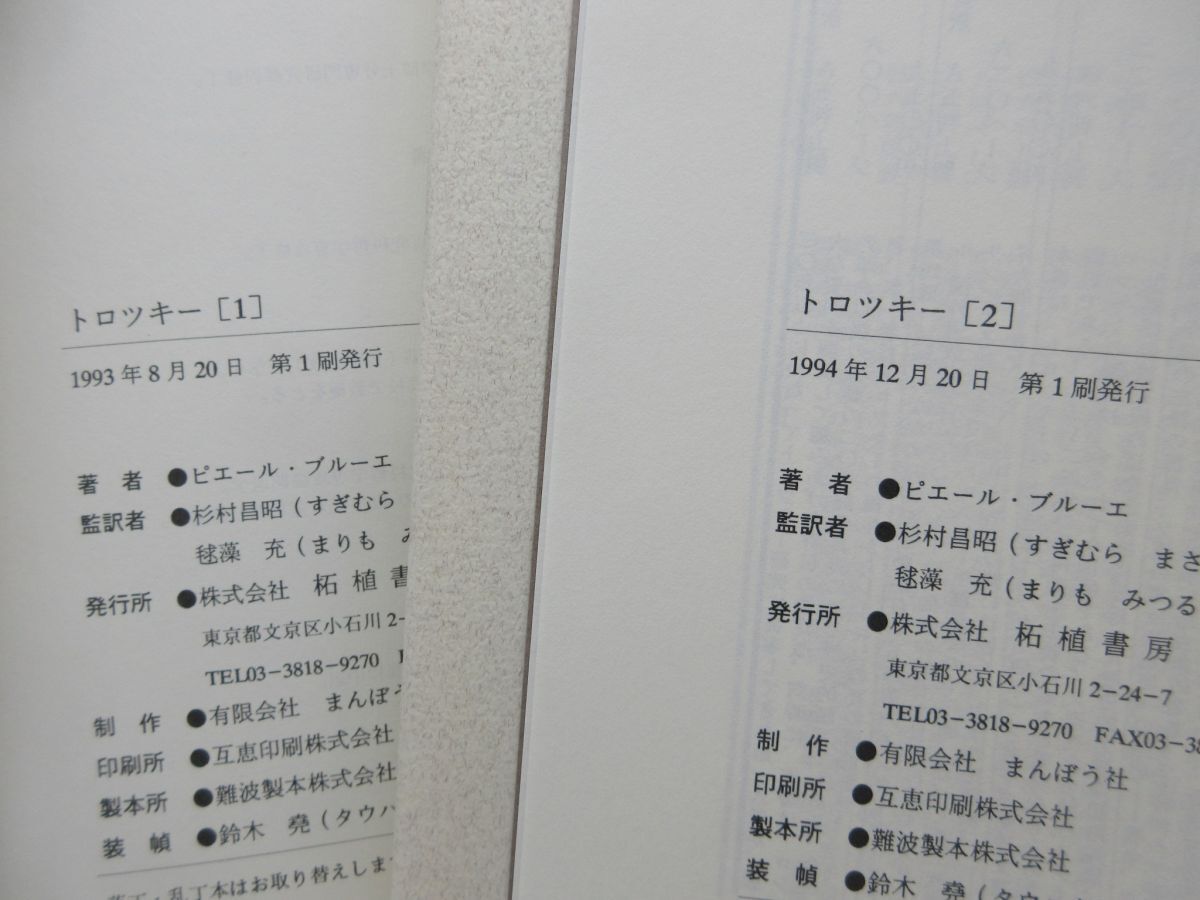 トロツキー［1］
1993年8月20日　第1刷発行
著　者　●ピエール・ブルーエ
監訳者　●杉村昌昭（すぎむら
毬藻　充（まりも
発行所　●株式会社　柘植書
東京都文京区小石川2-
TEL03−3818−9270
制　作　●有限会社　まんぼう
印刷所　●互恵印刷株式会社
製本所　●難波製本株式会社
装　幀　●鈴木　堯（タウハ
乱丁本はお取り替えしま
トロツキー［2］
1994年12月20日　第1刷発行
著　者　●ピエール・ブルーエ
監訳者　●杉村昌昭（すぎむら　まさ
毬藻　充（まりも　みつる
発行所　●株式会社　柘植書房
東京都文京区小石川2−24−7
TEL03−3818−9270　FAX03−38
制　作　●有限会社　まんぼう社
印刷所　●互恵印刷株式会社
製本所　●難波製本株式会社
装　幀　●鈴木　堯（タウハ